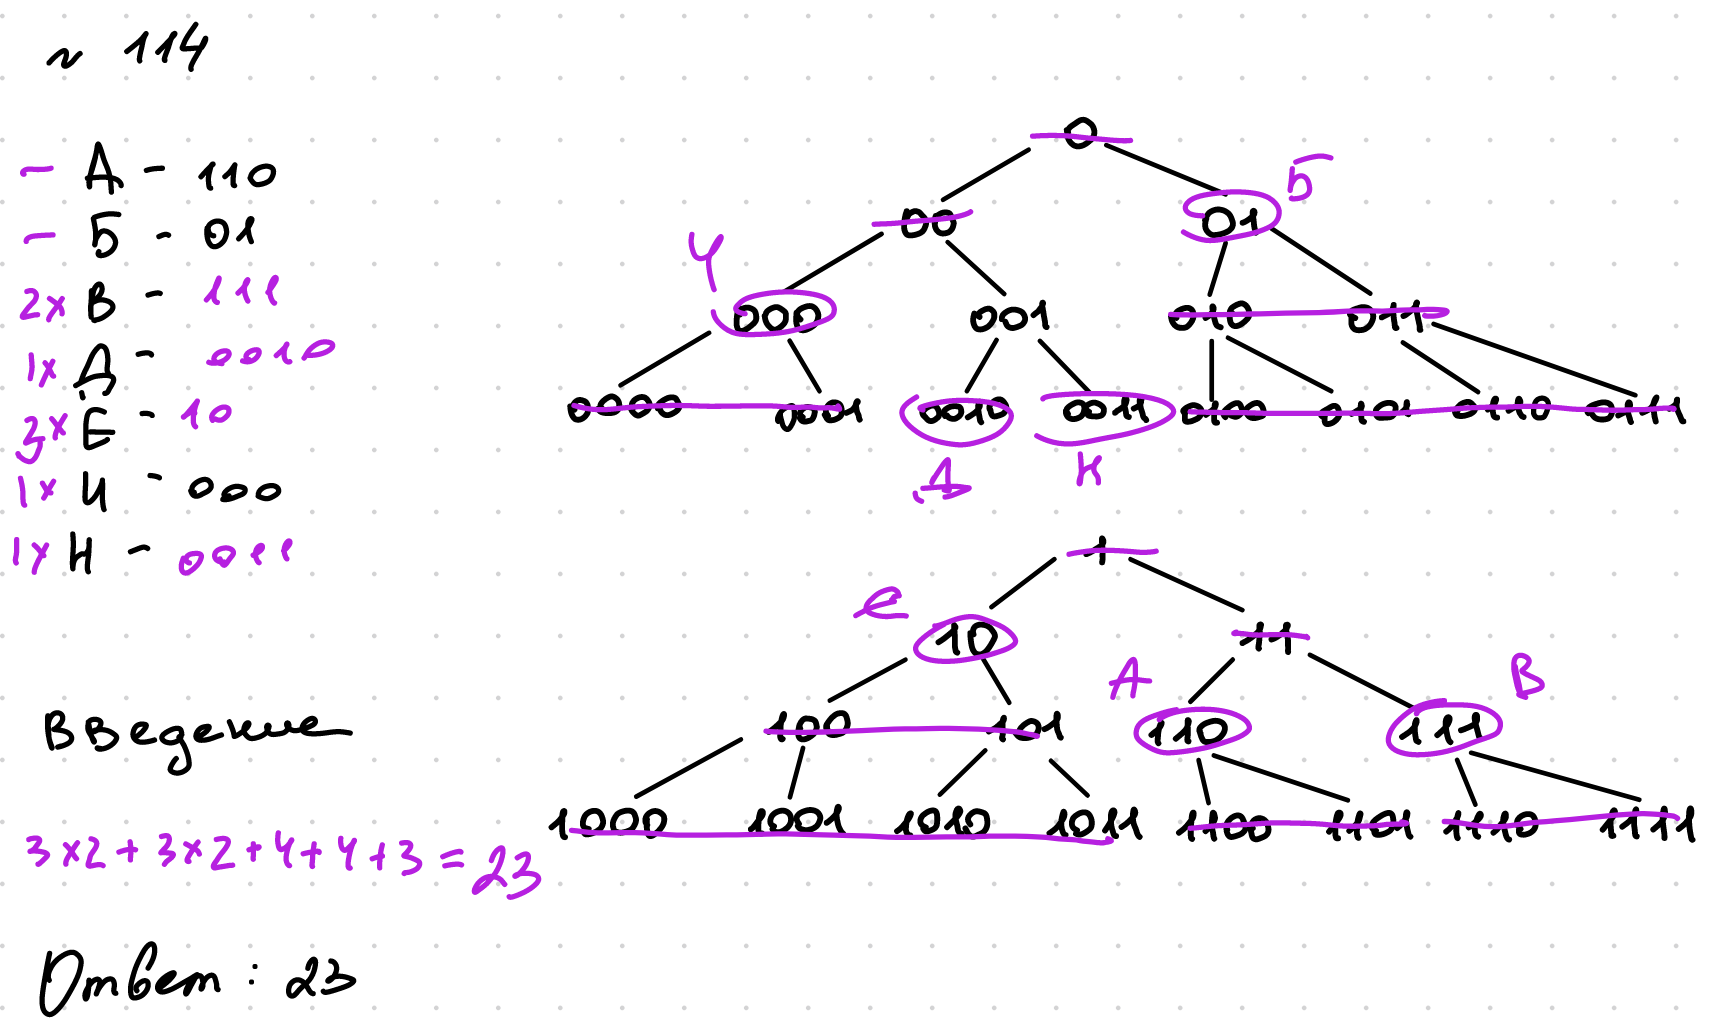 ~ 114
- А - 110
- Б - 01
2x В - 111
1x Д - 0010
3x Е - 10
1x И - 000
1x Н - 0011
Введение
3x2 + 3x2 + 4 + 4 + 3 = 23
Ответ : 23
0
Б
00 01
И
000 001 010 011
0000 0001 0010 0011 0100 0101 0110 0111
Д Н
1
е
10 11
А В
100 101 110 111
1000 1001 1010 1011 1100 1101 1110 1111